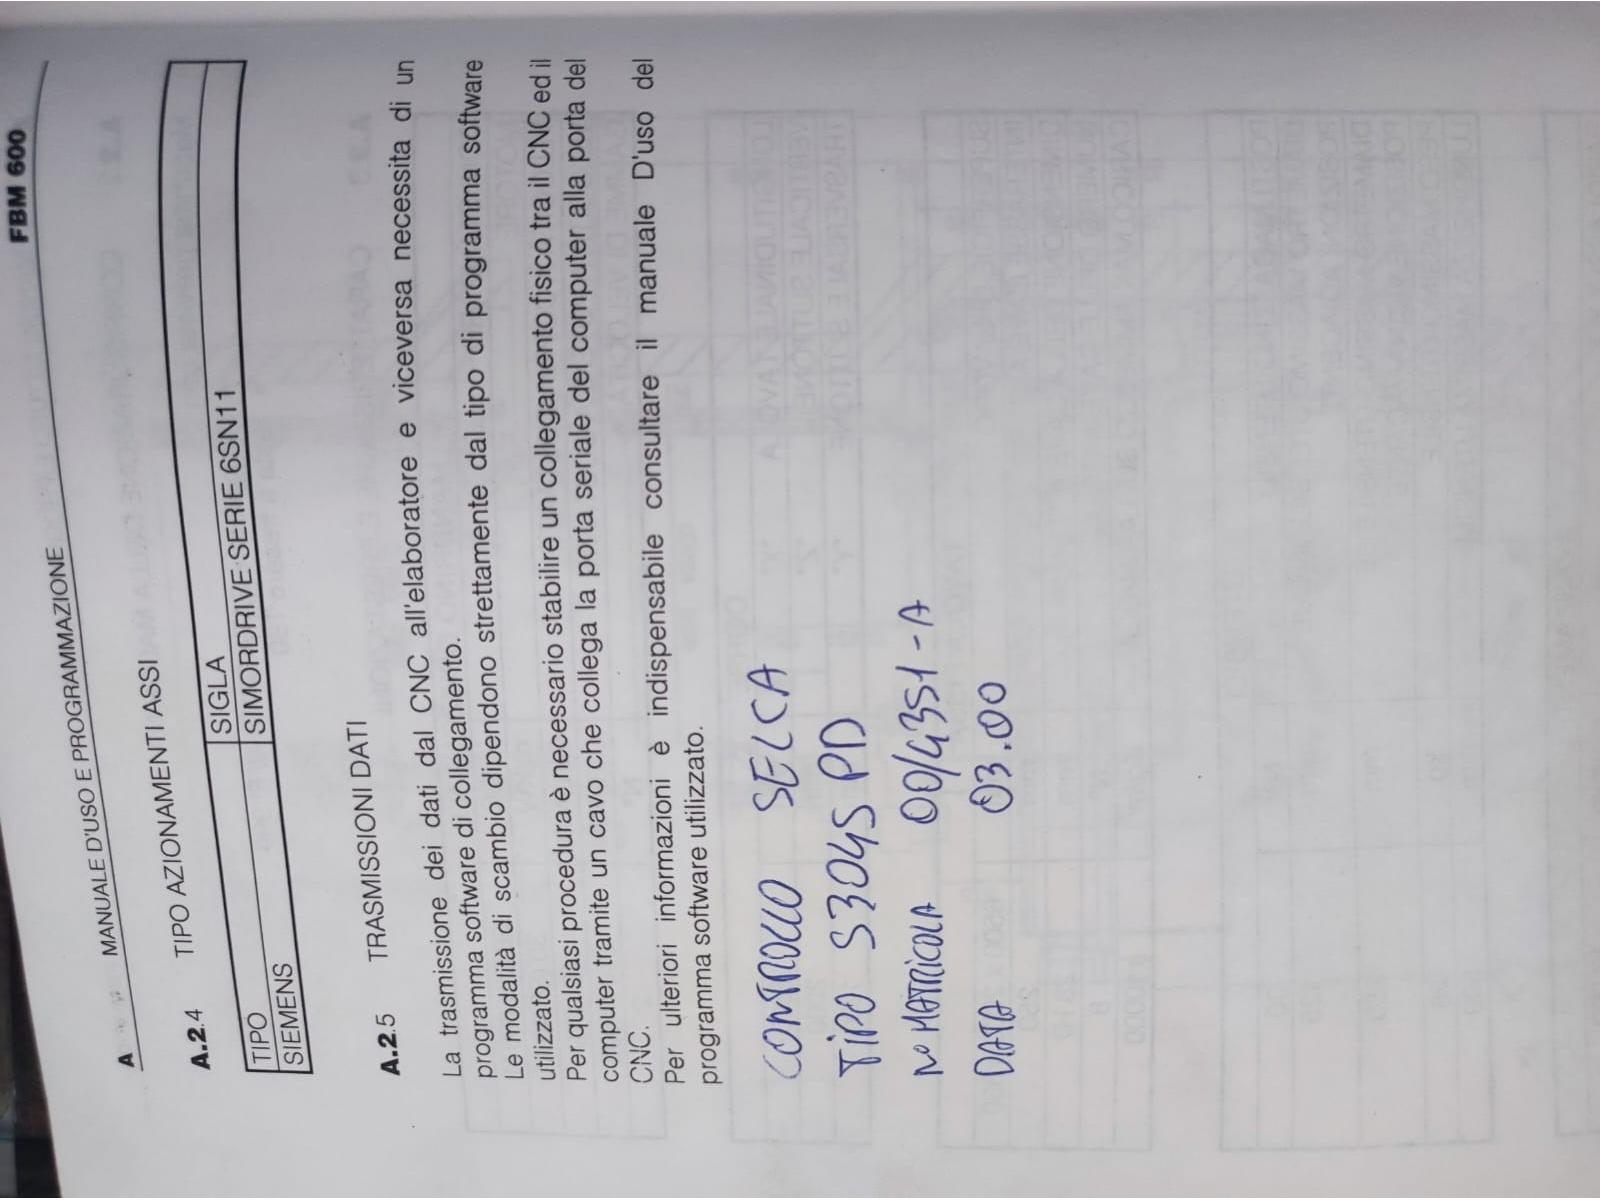 FBM 600
A MANUALE D'USO E PROGRAMMAZIONE
A.2.4 TIPO AZIONAMENTI ASSI
TIPO SIGLA
SIEMENS SIMORDRIVE SERIE 6SN11
A.2.5 TRASMISSIONI DATI
La trasmissione dei dati dal CNC all'elaboratore e viceversa necessita di un
programma software di collegamento.
Le modalità di scambio dipendono strettamente dal tipo di programma software
utilizzato.
Per qualsiasi procedura è necessario stabilire un collegamento fisico tra il CNC ed il
computer tramite un cavo che collega la porta seriale del computer alla porta del
CNC.
Per ulteriori informazioni è indispensabile consultare il manuale D'uso del
programma software utilizzato.
CONTROLLO SELCA
TIPO S3045 PD
N° MATRICOLA 00/4351-A
DATA 03.00